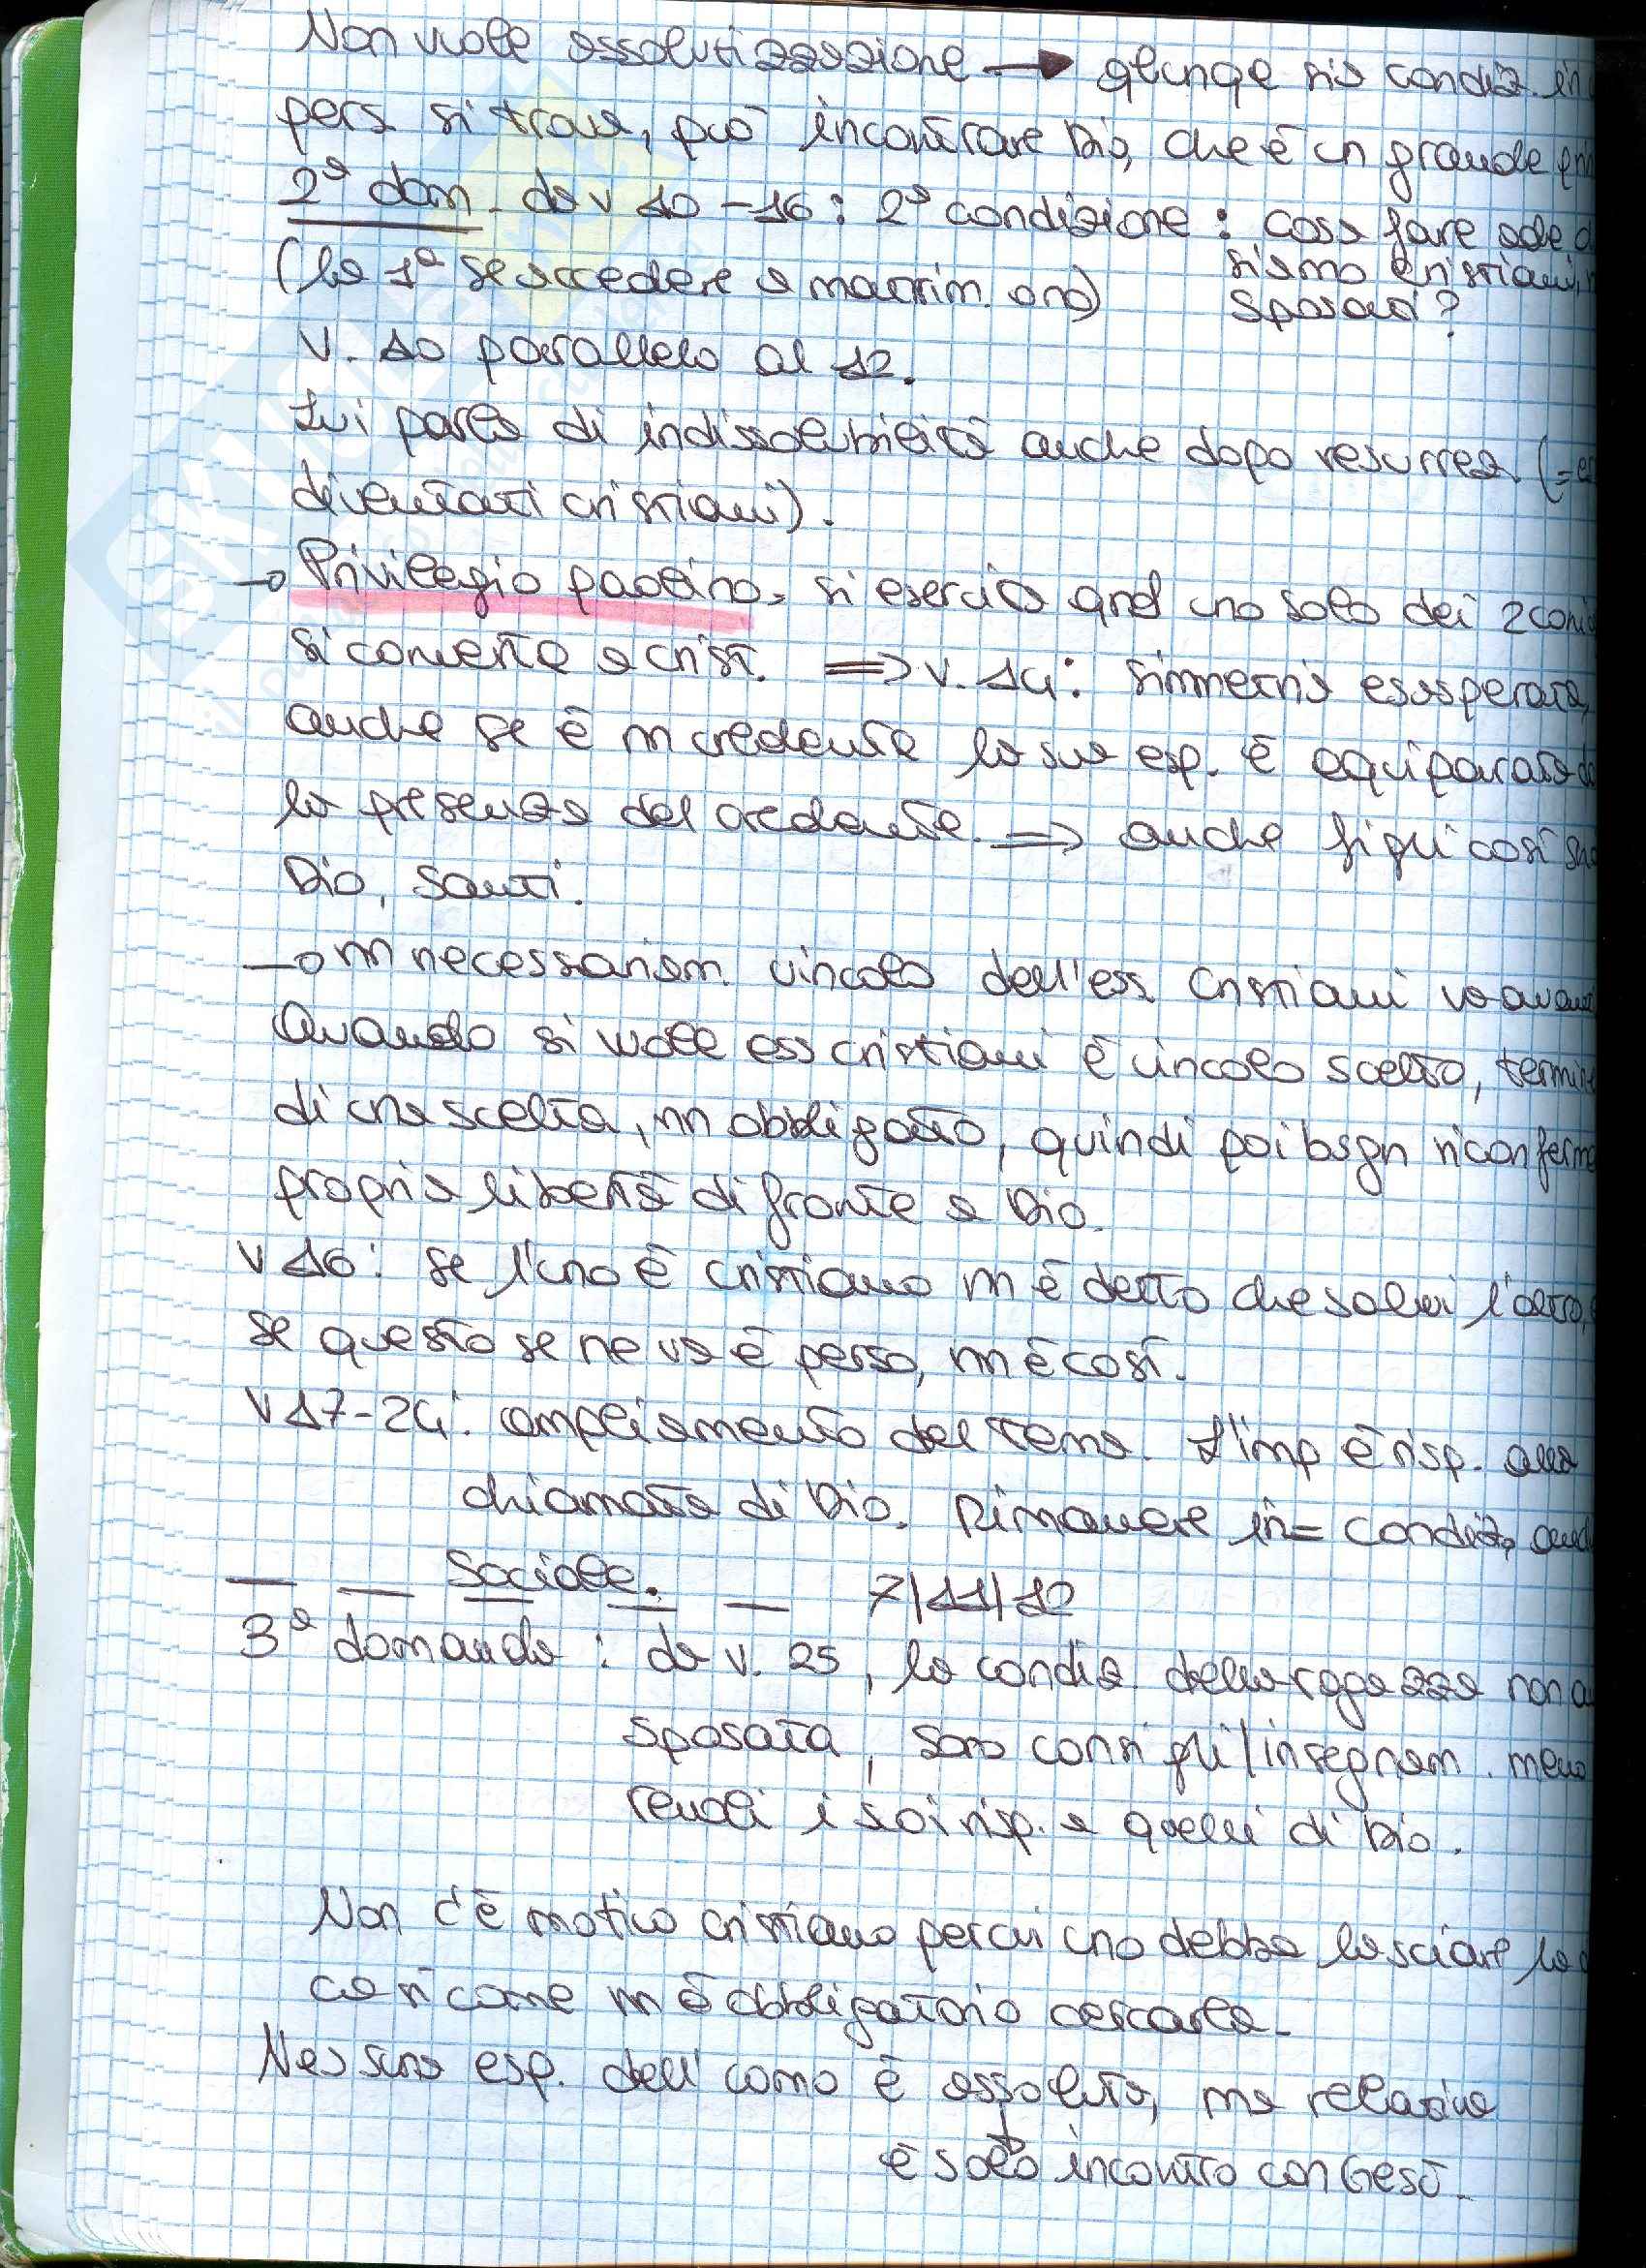 Non vuole assolutizzazione → qlunqe sia condiz. in
pers si trova, può incontrare Dio, che è un grande
2ª dom - da v 10 - 16 : 2ª condizione : cosa fare
siamo cristiani,
(la 1ª se accedere a matrim. o no) sposati ?
V. 10 parallelo al 12.
Lui parla di indissolubilità anche dopo resurrez. (=
diventati cristiani).
→ Privilegio paolino, si esercita qnd uno solo dei 2 coni
si converte a crist. => v. 14: simmetria esasperata,
anche se è nn credente la sua esp. è equiparata
la presenza del credente. => anche figli così
Dio, santi.
→ nn necessariam. vincolo dell'ess. cristiani va avanti
Quando si vuole ess cristiani è vincolo scelto, termine
di una scelta, nn obbligato, quindi poi bsgn riconferma
propria libertà di fronte a Dio.
V 16: se l'uno è cristiano nn è detto che salvi l'altro,
se questo se ne va è perso, nn è così.
V 17-24: ampliamento del tema. L'imp è risp. alla
chiamata di Dio. Rimanere in = condiz,
sociale. 7/11/12
3ª domanda : da v. 25, la condiz. della ragazza non
sposata, sono consigli/insegnam.
i suoi risp. a quelli di Dio.
Non c'è motivo cristiano per cui uno debba lasciare la
così come nn è obbligatorio cercarla.
Nessuna esp. dell'uomo è assoluta, ma relativa
è solo incontro con Gesù.